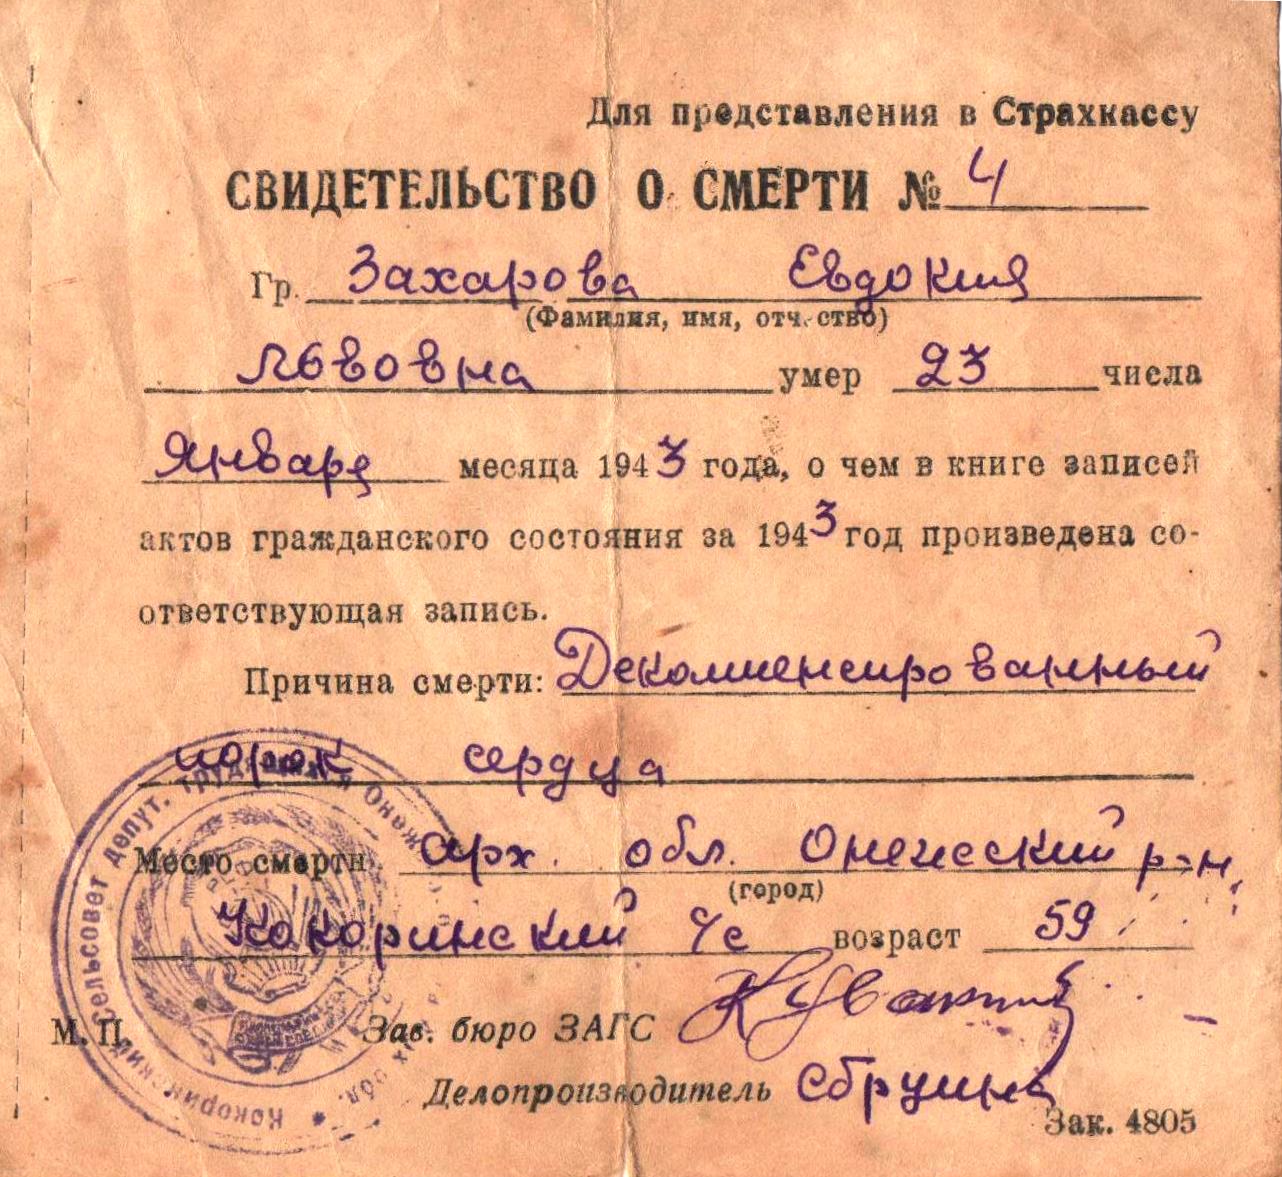 Для представления в Страхкассу
СВИДЕТЕЛЬСТВО О СМЕРТИ № 4
Гр. Захарова Евдокия
(Фамилия, имя, отч. ство)
Львовна умер 23 числа
Января месяца 1943 года, о чем в книге записей
актов гражданского состояния за 1943 год произведена со-
ответствующая запись.
Причина смерти: Декомпенсированный
порок сердца
Место смерти Арх. обл. Онежский р-н.
(город)
Кокоринский с/с возраст 59
М. П. Зав. бюро ЗАГС
Делопроизводитель
Зак. 4805
Кокоринский сельсовет депут. трудящихся Онежск обл.